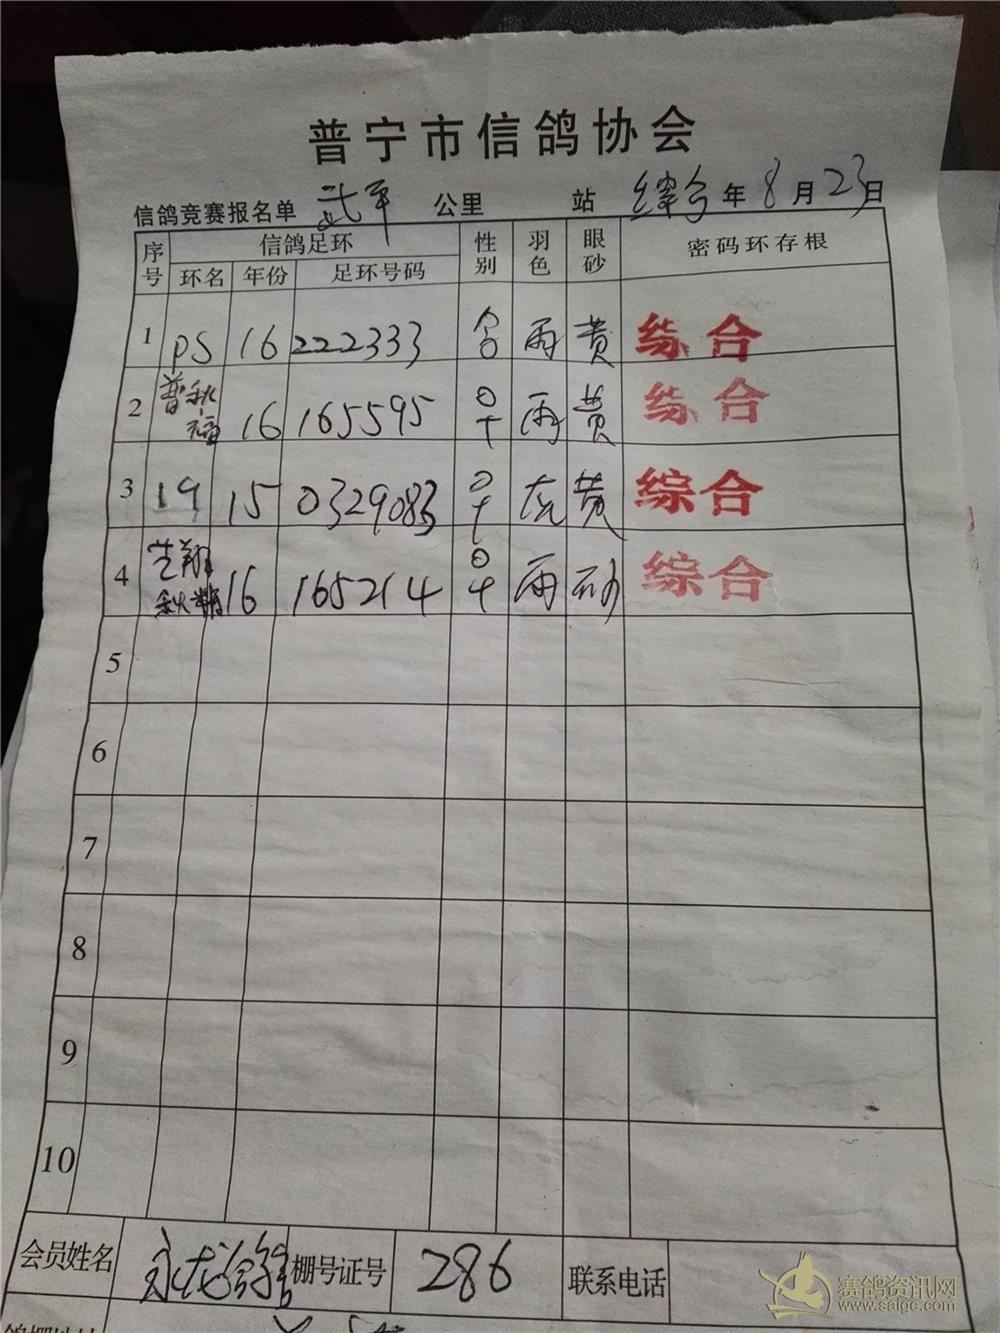 普宁市信鸽协会
信鸽竞赛报名单 武平 公里 站 综合 年 8 月 23 日
序号 信鸽足环 性别 羽色 眼砂 密码环存根
环名 年份 足环号码
1 PS 16 222333 雨 黄 综合
2 普秋 16 165595 ♀ 雨 黄 综合
3 19 15 0329083 ♀ 灰 黄 综合
4 芝翔 16 165214 ♀ 雨 砂 综合
5
6
7
8
9
10
会员姓名 永龙 棚号证号 286 联系电话
鸽棚地址
赛鸽资讯网
www.saige.com